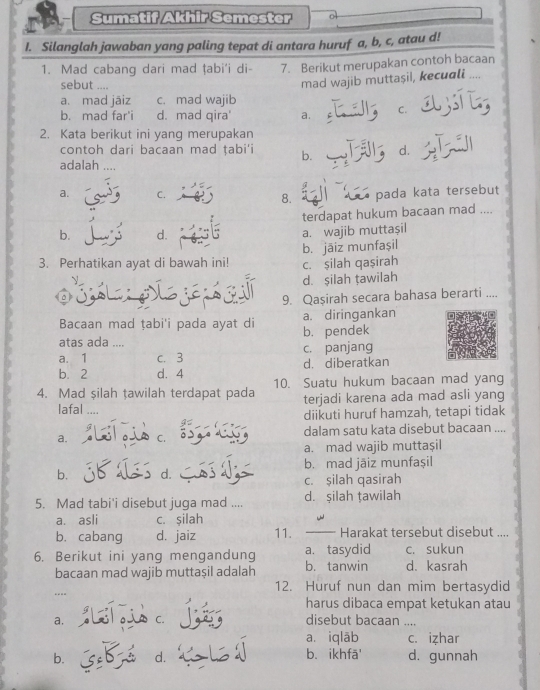 Sumatif Akhir Semester
I. Silanglah jawaban yang paling tepat di antara huruf a, b, c, atau d!
1. Mad cabang dari mad ṭabi'i di-
sebut ....
a. mad jāiz c. mad wajib
b. mad far'i d. mad qira'
2. Kata berikut ini yang merupakan
contoh dari bacaan mad ṭabi'i
adalah ....
a. c. رَبَّهُمْ
b. d.
3. Perhatikan ayat di bawah ini!
الَّذِيْنَ هُمْ عَنْ صَلَاتِهِمْ سَاهُوْنَۙ ٥
Bacaan mad ṭabi'i pada ayat di
atas ada ....
a. 1 c. 3
b. 2 d. 4
4. Mad ṣilah ṭawilah terdapat pada
lafal ....
a. هٰذِهٖٓ اَعْلَمُ c. وَبَيْنَهٗ مَوَدَّةٌ
b. d.
5. Mad tabi'i disebut juga mad ....
a. asli c. ṣilah
b. cabang d. jaiz
6. Berikut ini yang mengandung
bacaan mad wajib muttaṣil adalah
....
a. هٰذِهٖٓ اَعْلَمُ c.
b. شُرَكَاۤءِيَ d.
7. Berikut merupakan contoh bacaan
mad wajib muttaṣil, kecuali ....
a. وَالسَّمَاۤءِ c. وَمَآ اَدْرٰىكَ
b. وَالتَّرَاۤىِٕبِ d. السَّرَاۤىِٕرُ
8. مَعَهٗٓ اِلٰهًا pada kata tersebut
terdapat hukum bacaan mad ....
a. wajib muttaṣil
b. jāiz munfaṣil
c. ṣilah qaṣirah
d. ṣilah ṭawilah
9. Qaṣirah secara bahasa berarti ....
a. diringankan
b. pendek
c. panjang
d. diberatkan
10. Suatu hukum bacaan mad yang
terjadi karena ada mad asli yang
diikuti huruf hamzah, tetapi tidak
dalam satu kata disebut bacaan ....
a. mad wajib muttaṣil
b. mad jāiz munfaṣil
c. ṣilah qasirah
d. ṣilah ṭawilah
11. Harakat tersebut disebut ....
a. tasydid c. sukun
b. tanwin d. kasrah
12. Huruf nun dan mim bertasydid
harus dibaca empat ketukan atau
disebut bacaan ....
a. iqlāb c. iẓhar
b. ikhfā' d. gunnah